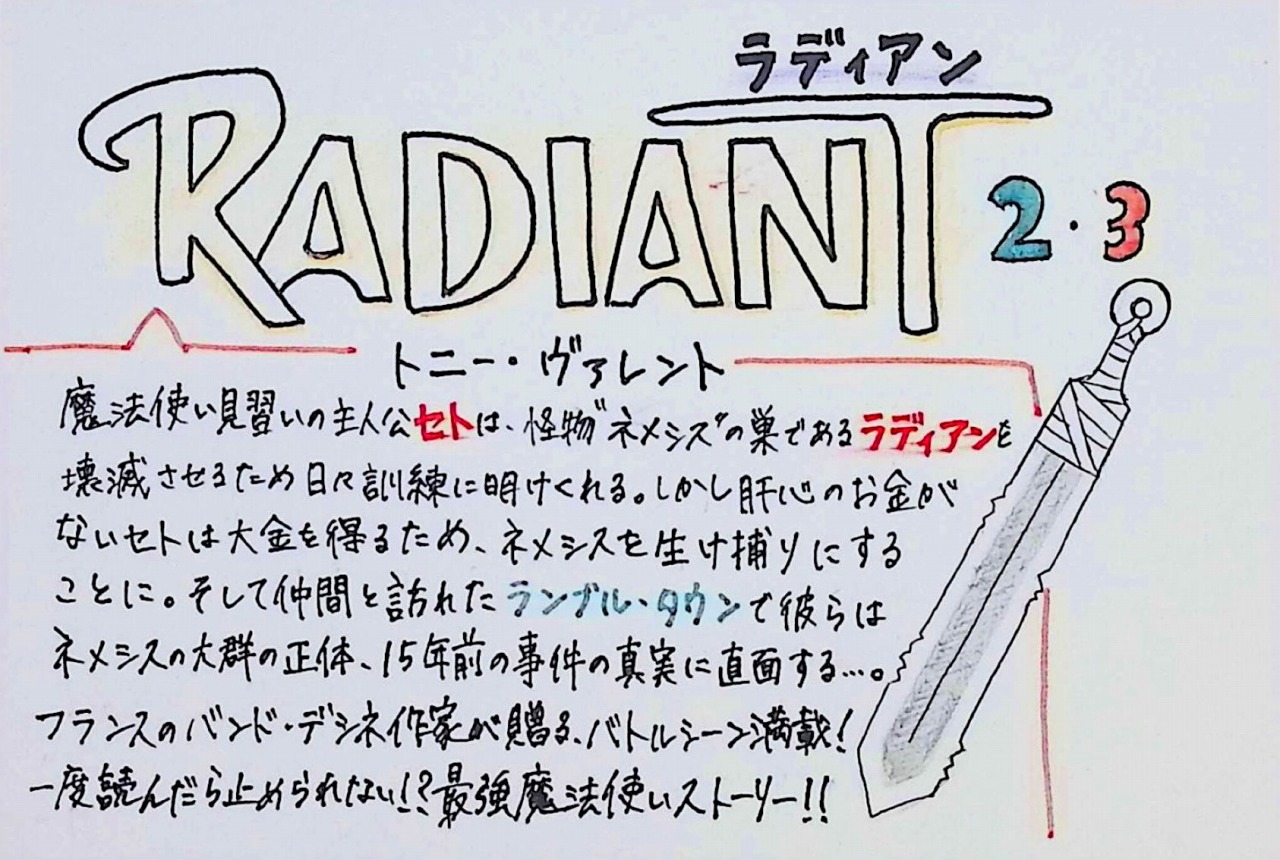 ラディアン
RADIANT
2・3
トニー・ヴァレント
魔法使い見習いの主人公セトは、怪物"ネメシズ"の巣であるラディアンを
壊滅させるため日々訓練に明けくれる。しかし肝心のお金が
ないセトは大金を得るため、ネメシスを生け捕りにする
ことに。そして仲間と訪れたランブル・タウンで彼らは
ネメシスの大群の正体、15年前の事件の真実に直面する…。
フランスのバンド・デシネ作家が贈る、バトルシーン満載!
一度読んだら止められない!?最強魔法使いストーリー!!